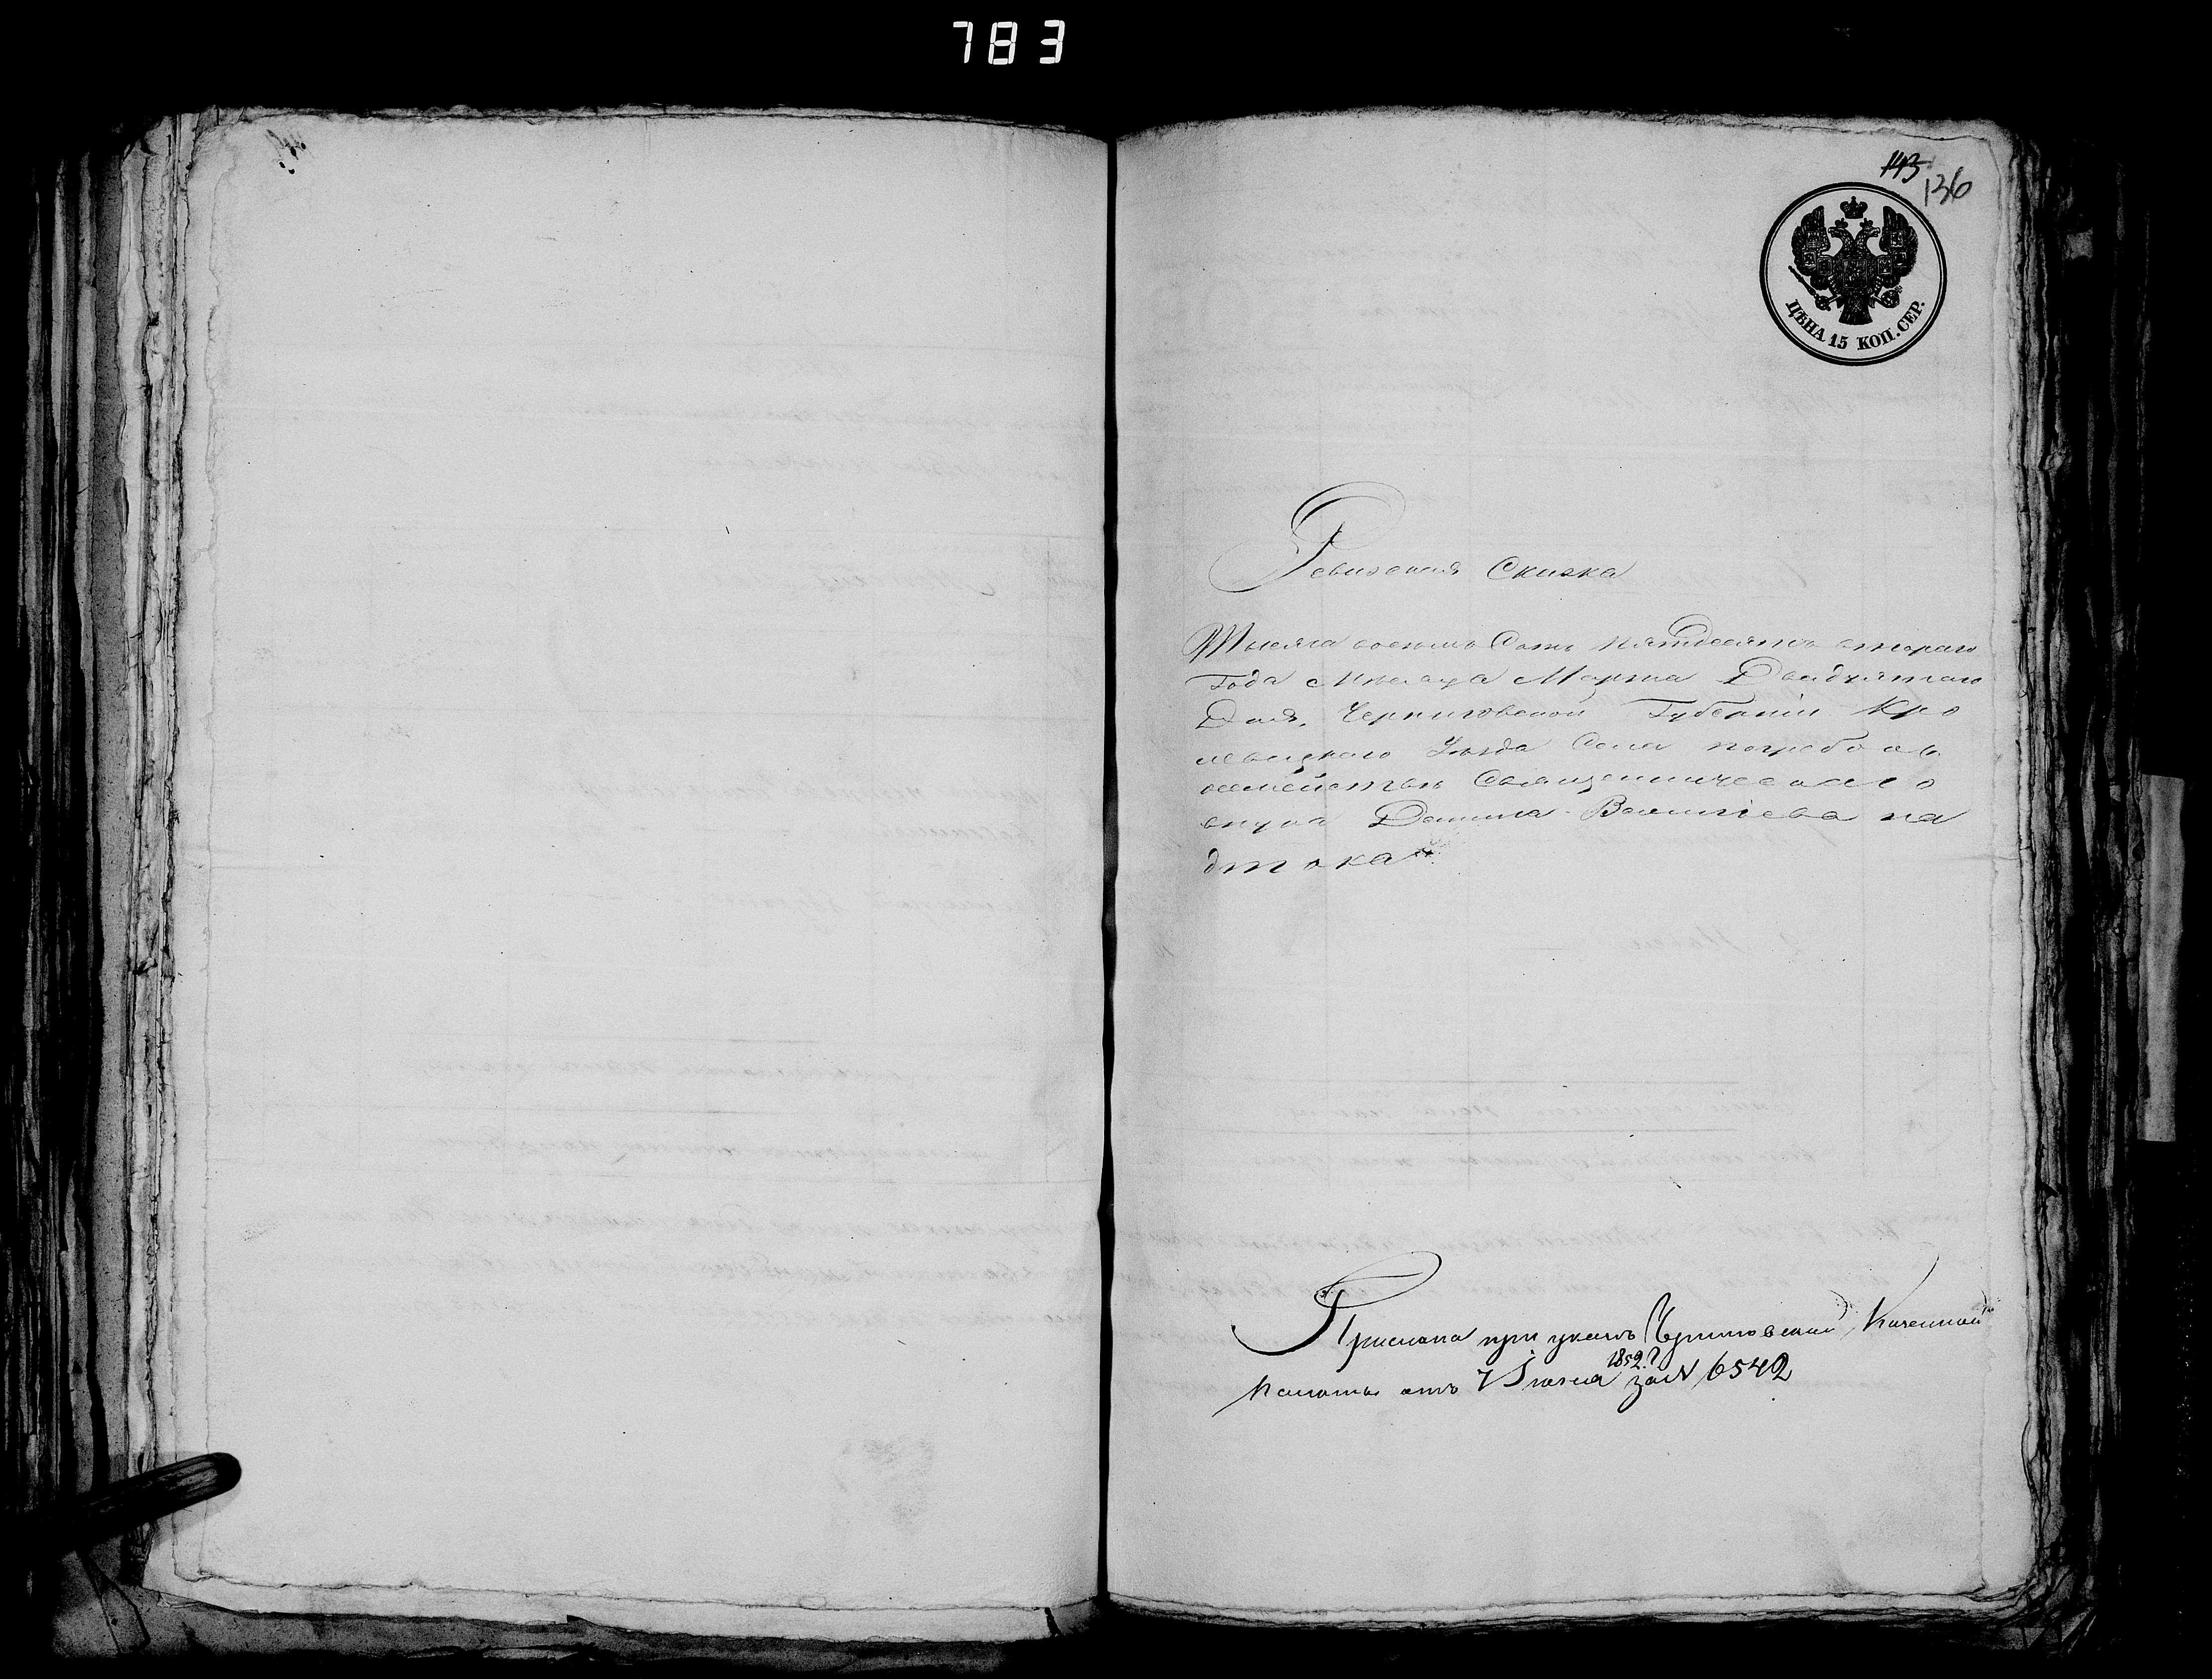 783
143
136
ЦѢНА 15 КОП. СЕР.
Ревизская Сказка
Тысяча восемь Сотъ пятдесятъ втораго
Года Мѣсяца Марта Двадцятаго
Дня, Черниговской Губерніи Кро
левецкаго Уѣзда Села погребокъ
семействы Священническаго
внука Данила
Прислана при указѣ Черниговской Казенной
Палаты отъ 7 Іюня 1852 г. за N 6542